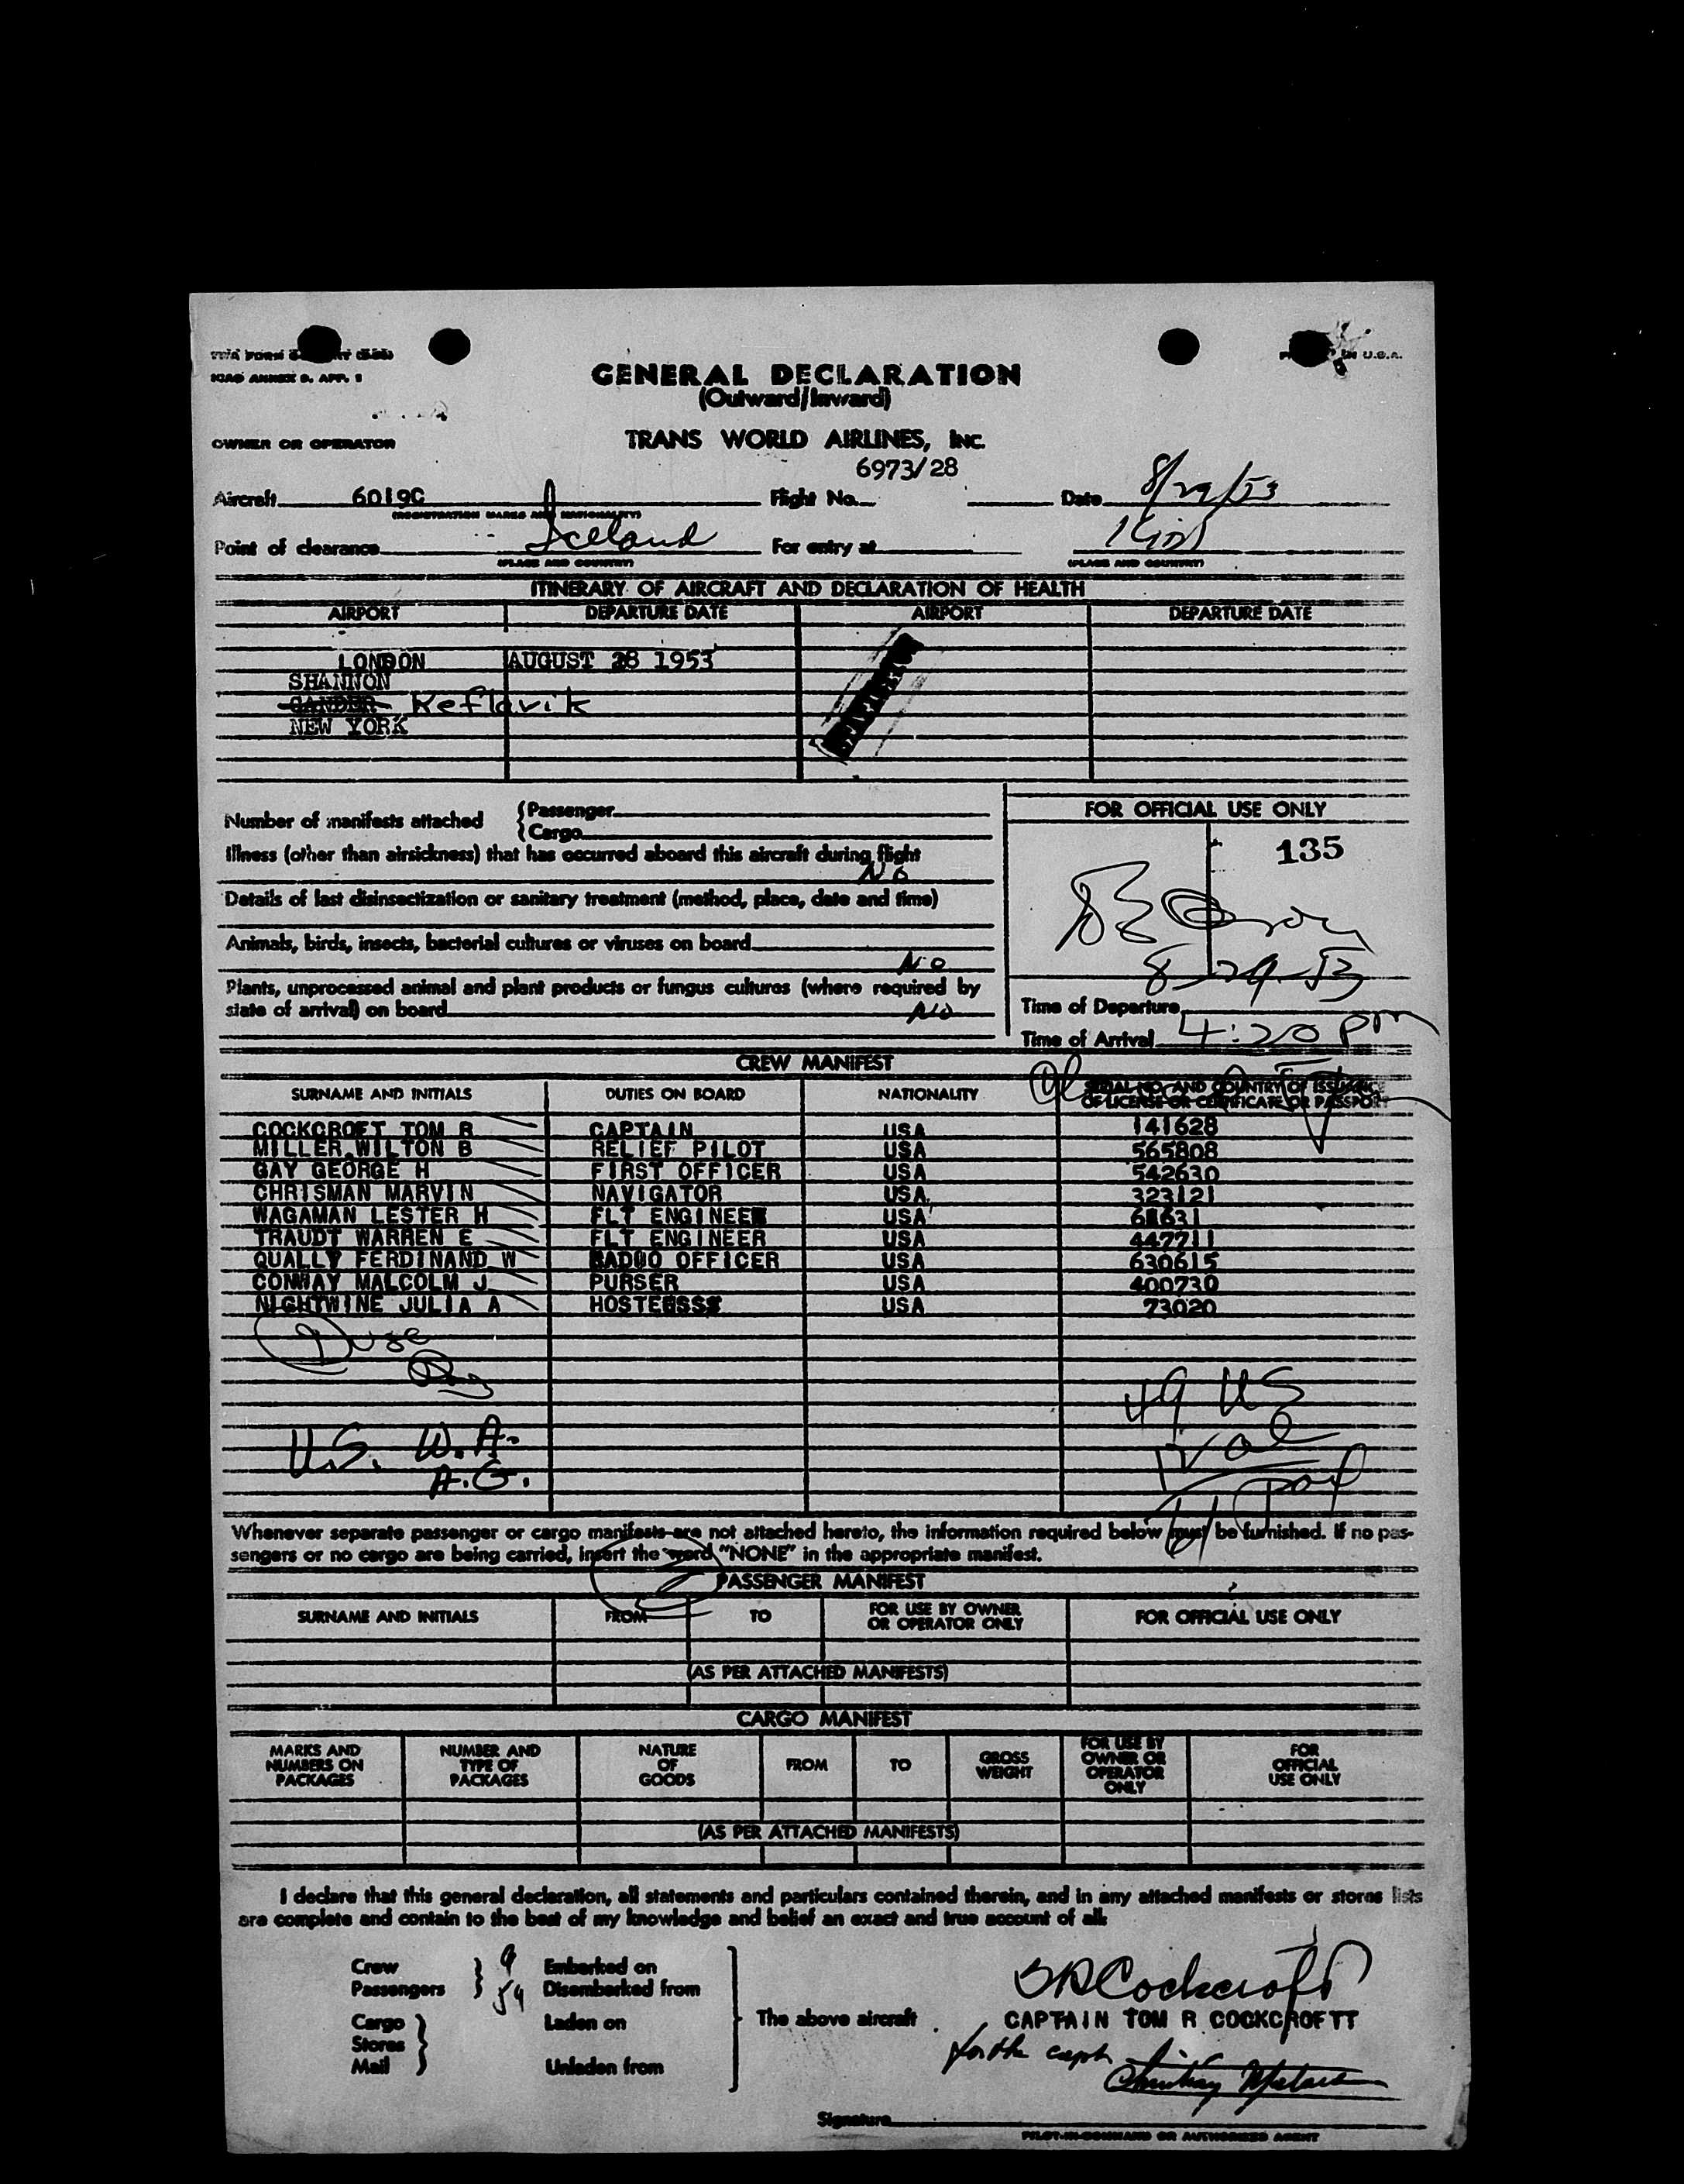 ICAO ANNEX 9. APP. 1
GENERAL DECLARATION
(Outward/Inward)
OWNER OR OPERATOR TRANS WORLD AIRLINES, INC.
6973/28
Aircraft 6019C Flight No. Date 8/29/53
(REGISTRATION MARKS AND NATIONALITY)
Point of clearance Iceland For entry at
(PLACE AND COUNTRY) (PLACE AND COUNTRY)
ITINERARY OF AIRCRAFT AND DECLARATION OF HEALTH
AIRPORT DEPARTURE DATE AIRPORT DEPARTURE DATE
LONDON AUGUST 28 1953
SHANNON
GANDER Keflavik
NEW YORK
Number of manifests attached { Passenger
Cargo
FOR OFFICIAL USE ONLY
135
Illness (other than airsickness) that has occurred aboard this aircraft during flight
No
Details of last disinsectization or sanitary treatment (method, place, date and time)
Animals, birds, insects, bacterial cultures or viruses on board
No
8-29-53
Plants, unprocessed animal and plant products or fungus cultures (where required by
state of arrival) on board No
Time of Departure
Time of Arrival 4:20 PM
CREW MANIFEST
SURNAME AND INITIALS DUTIES ON BOARD NATIONALITY SERIAL NO. AND COUNTRY OF ISSUANCE
OF LICENSE OR CERTIFICATE OR PASSPORT
COCKCROFT TOM R CAPTAIN USA 141628
MILLER WILTON B RELIEF PILOT USA 565808
GAY GEORGE H FIRST OFFICER USA 542630
CHRISMAN MARVIN NAVIGATOR USA. 323121
WAGAMAN LESTER H FLT ENGINEER USA
TRAUDT WARREN E FLT ENGINEER USA 447711
QUALLY FERDINAND W RADIO OFFICER USA 630615
CONWAY MALCOLM J PURSER USA 400730
NIGHTWINE JULIA A HOSTESS USA 73020
49 US
U.S. W.A.
A.G.
Whenever separate passenger or cargo manifests are not attached hereto, the information required below must be furnished. If no pas-
sengers or no cargo are being carried, insert the word "NONE" in the appropriate manifest.
PASSENGER MANIFEST
SURNAME AND INITIALS FROM TO FOR USE BY OWNER
OR OPERATOR ONLY FOR OFFICIAL USE ONLY
(AS PER ATTACHED MANIFESTS)
CARGO MANIFEST
MARKS AND
NUMBERS ON
PACKAGES NUMBER AND
TYPE OF
PACKAGES NATURE
OF
GOODS FROM TO GROSS
WEIGHT FOR USE BY
OWNER OR
OPERATOR
ONLY FOR
OFFICIAL
USE ONLY
(AS PER ATTACHED MANIFESTS)
I declare that this general declaration, all statements and particulars contained therein, and in any attached manifests or stores lists
are complete and contain to the best of my knowledge and belief an exact and true account of all:
Crew 9 Embarked on
Passengers 59 Disembarked from
Cargo Laden on
Stores
Mail Unladen from
The above aircraft
TR Cockcroft
CAPTAIN TOM R COCKCROFTT
for the capt.
Signature
PILOT-IN-COMMAND OR AUTHORIZED AGENT